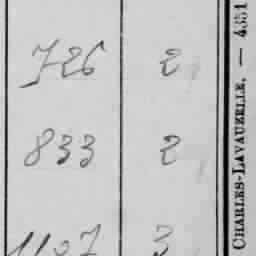 726 2
833 2
1127 3
CHARLES-LAVAUZELLE. — 4351